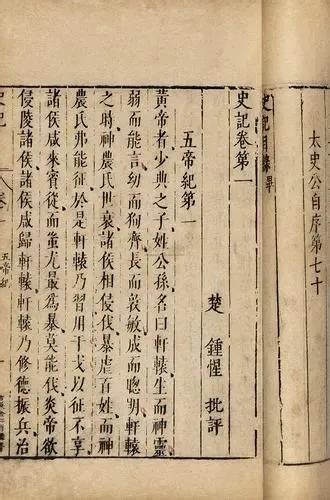 太史公自序第七十
史記目錄畢
史記卷第一
楚 鍾惺 批評
五帝紀第一
黃帝者少典之子姓公孫名曰軒轅生而神靈
弱而能言幼而狥齊長而敦敏成而聰明軒轅
之時神農氏世衰諸侯相侵伐暴虐百姓而神
農氏弗能征於是軒轅乃習用干戈以征不享
諸侯咸來賓從而蚩尤最爲暴莫能伐炎帝欲
侵陵諸侯諸侯咸歸軒轅軒轅乃修德振兵治
史記
卷一
五帝紀